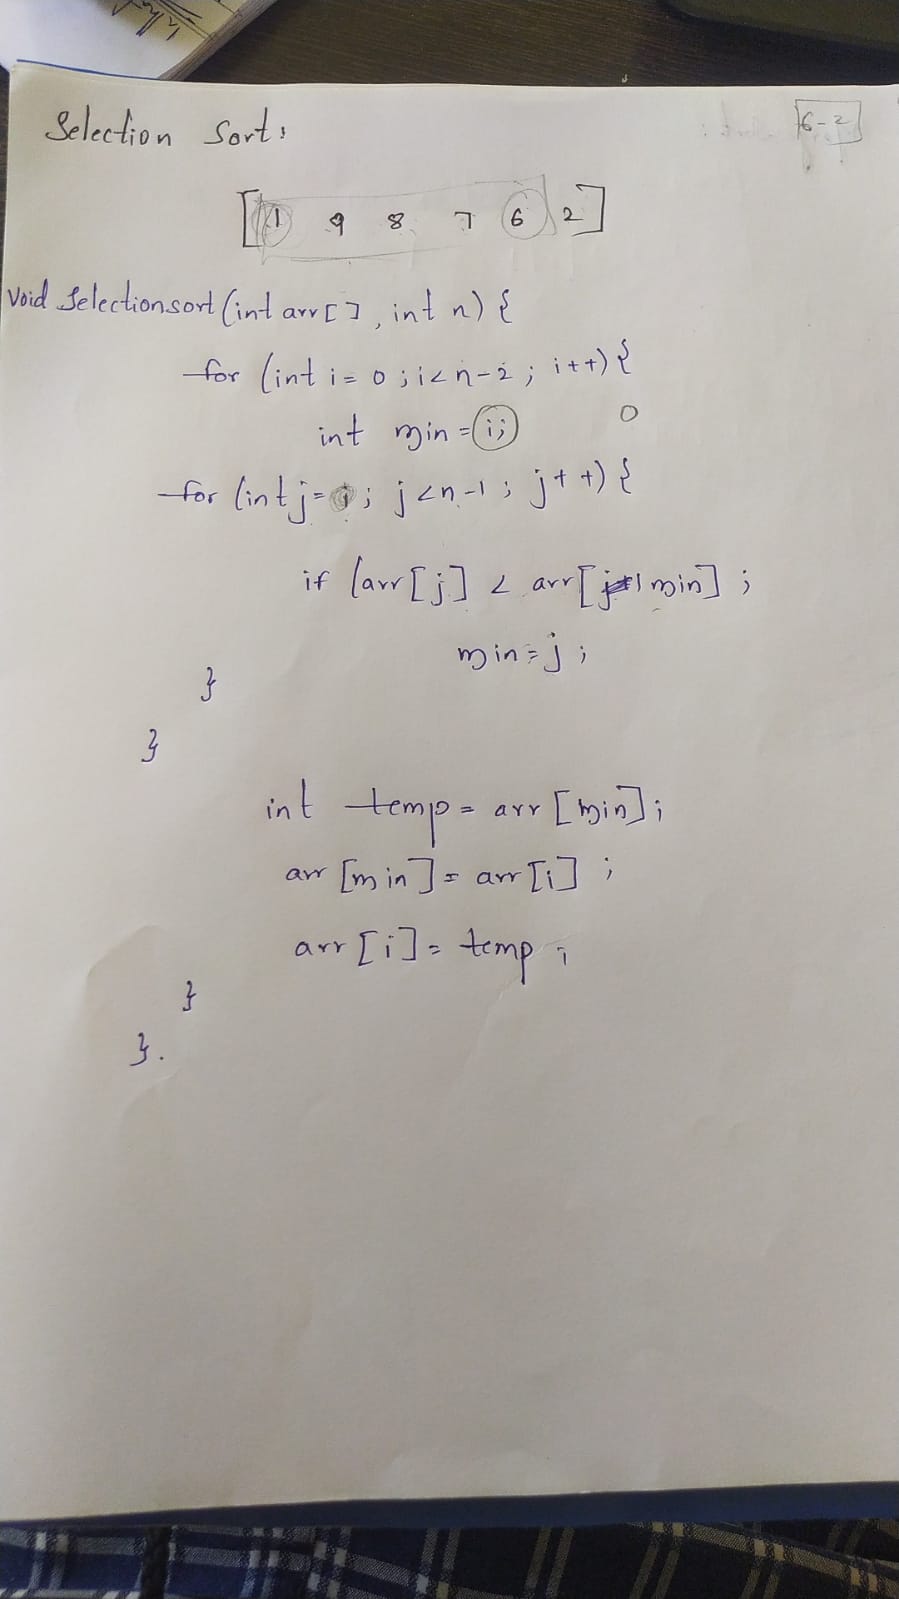 Selection Sort:
6-2
[1 9 8 7 6 2]
void Selectionsort (int arr[], int n) {
for (int i = 0; i < n-2; i++) {
int min = i;
0
for (int j = i; j < n-1; j++) {
if (arr[j] < arr[min];
min = j;
}
}
int temp = arr [min];
arr [min] = arr [i];
arr [i] = temp;
}
}.